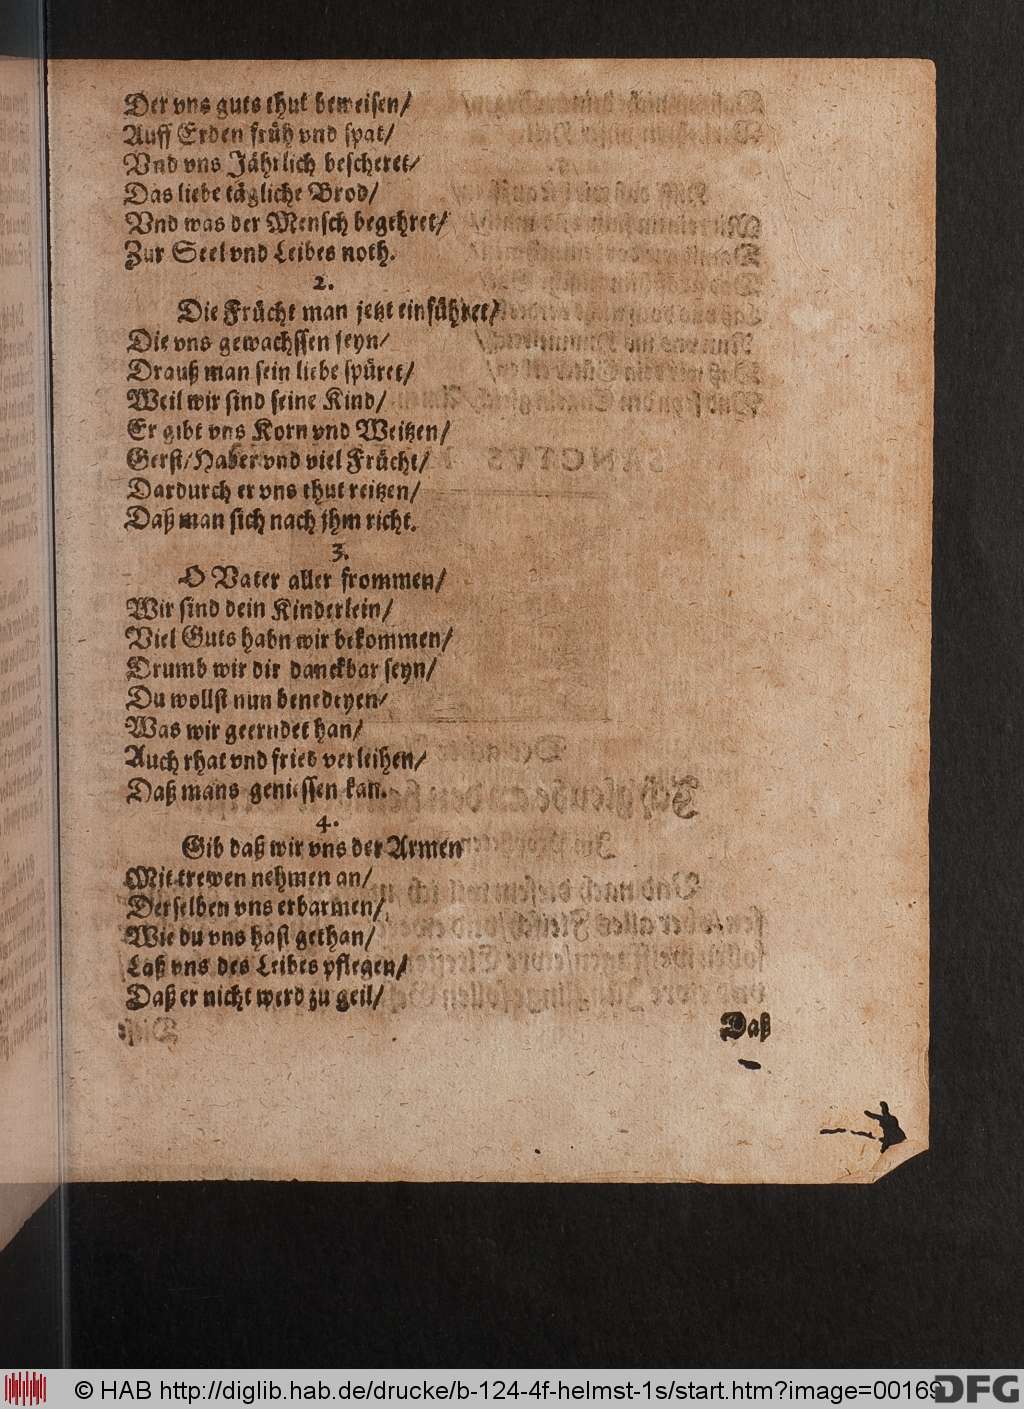 Der vns guts thut beweisen/
Auff Erden früh vnd spat/
Vnd vns Jährlich bescheret/
Das liebe tägliche Brod/
Vnd was der Mensch begehret/
Zur Seel vnd Leibes noth.
2.
Die Frücht man jetzt einführet/
Die vns gewachssen seyn/
Drauß man sein liebe spüret/
Weil wir sind seine Kind/
Er gibt vns Korn vnd Weitzen/
Gerst/Haber vnd viel Frücht/
Dardurch er vns thut reitzen/
Daß man sich nach jhm richt.
3.
O Vater aller frommen/
Wir sind dein Kinderlein/
Viel Guts habn wir bekommen/
Drumb wir dir danckbar seyn/
Du wollst nun benedeyen/
Was wir geerndet han/
Auch rhat vnd fried verleihen/
Daß mans geniessen kan.
4.
Gib daß wir vns der Armen
Mit trewen nehmen an/
Derselben vns erbarmen/
Wie du vns hast gethan/
Laß vns des Leibes pflegen/
Daß er nicht werd zu geil/
Daß
© HAB http://diglib.hab.de/drucke/b-124-4f-helmst-1s/start.htm?image=00169
DFG